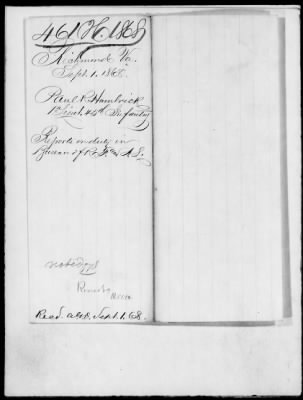 461 H. 1868
Richmond Va.
Sept. 1. 1868.
Paul R. Hambrick
1st Lieut. 44th Infantry
Reports on duty in
Bureau of R. F. & A. L.
noted
Recd. A.G.O. Sept. 1. 68.